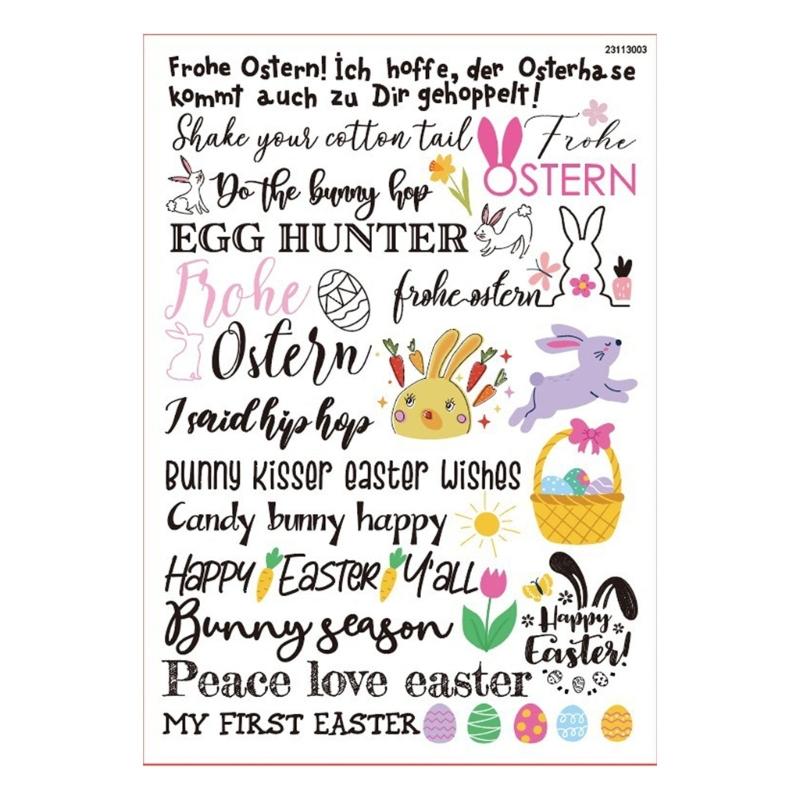 23113003
Frohe Ostern! Ich hoffe, der Osterhase
kommt auch zu Dir gehoppelt!
Shake your cotton tail
Frohe
OSTERN
Do the bunny hop
EGG HUNTER
Frohe
Ostern
frohe ostern
I said hip hop
Bunny kisser easter wishes
Candy bunny happy
HAPPY EASTER Y'ALL
Bunny season
Happy
Easter!
Peace love easter
MY FIRST EASTER